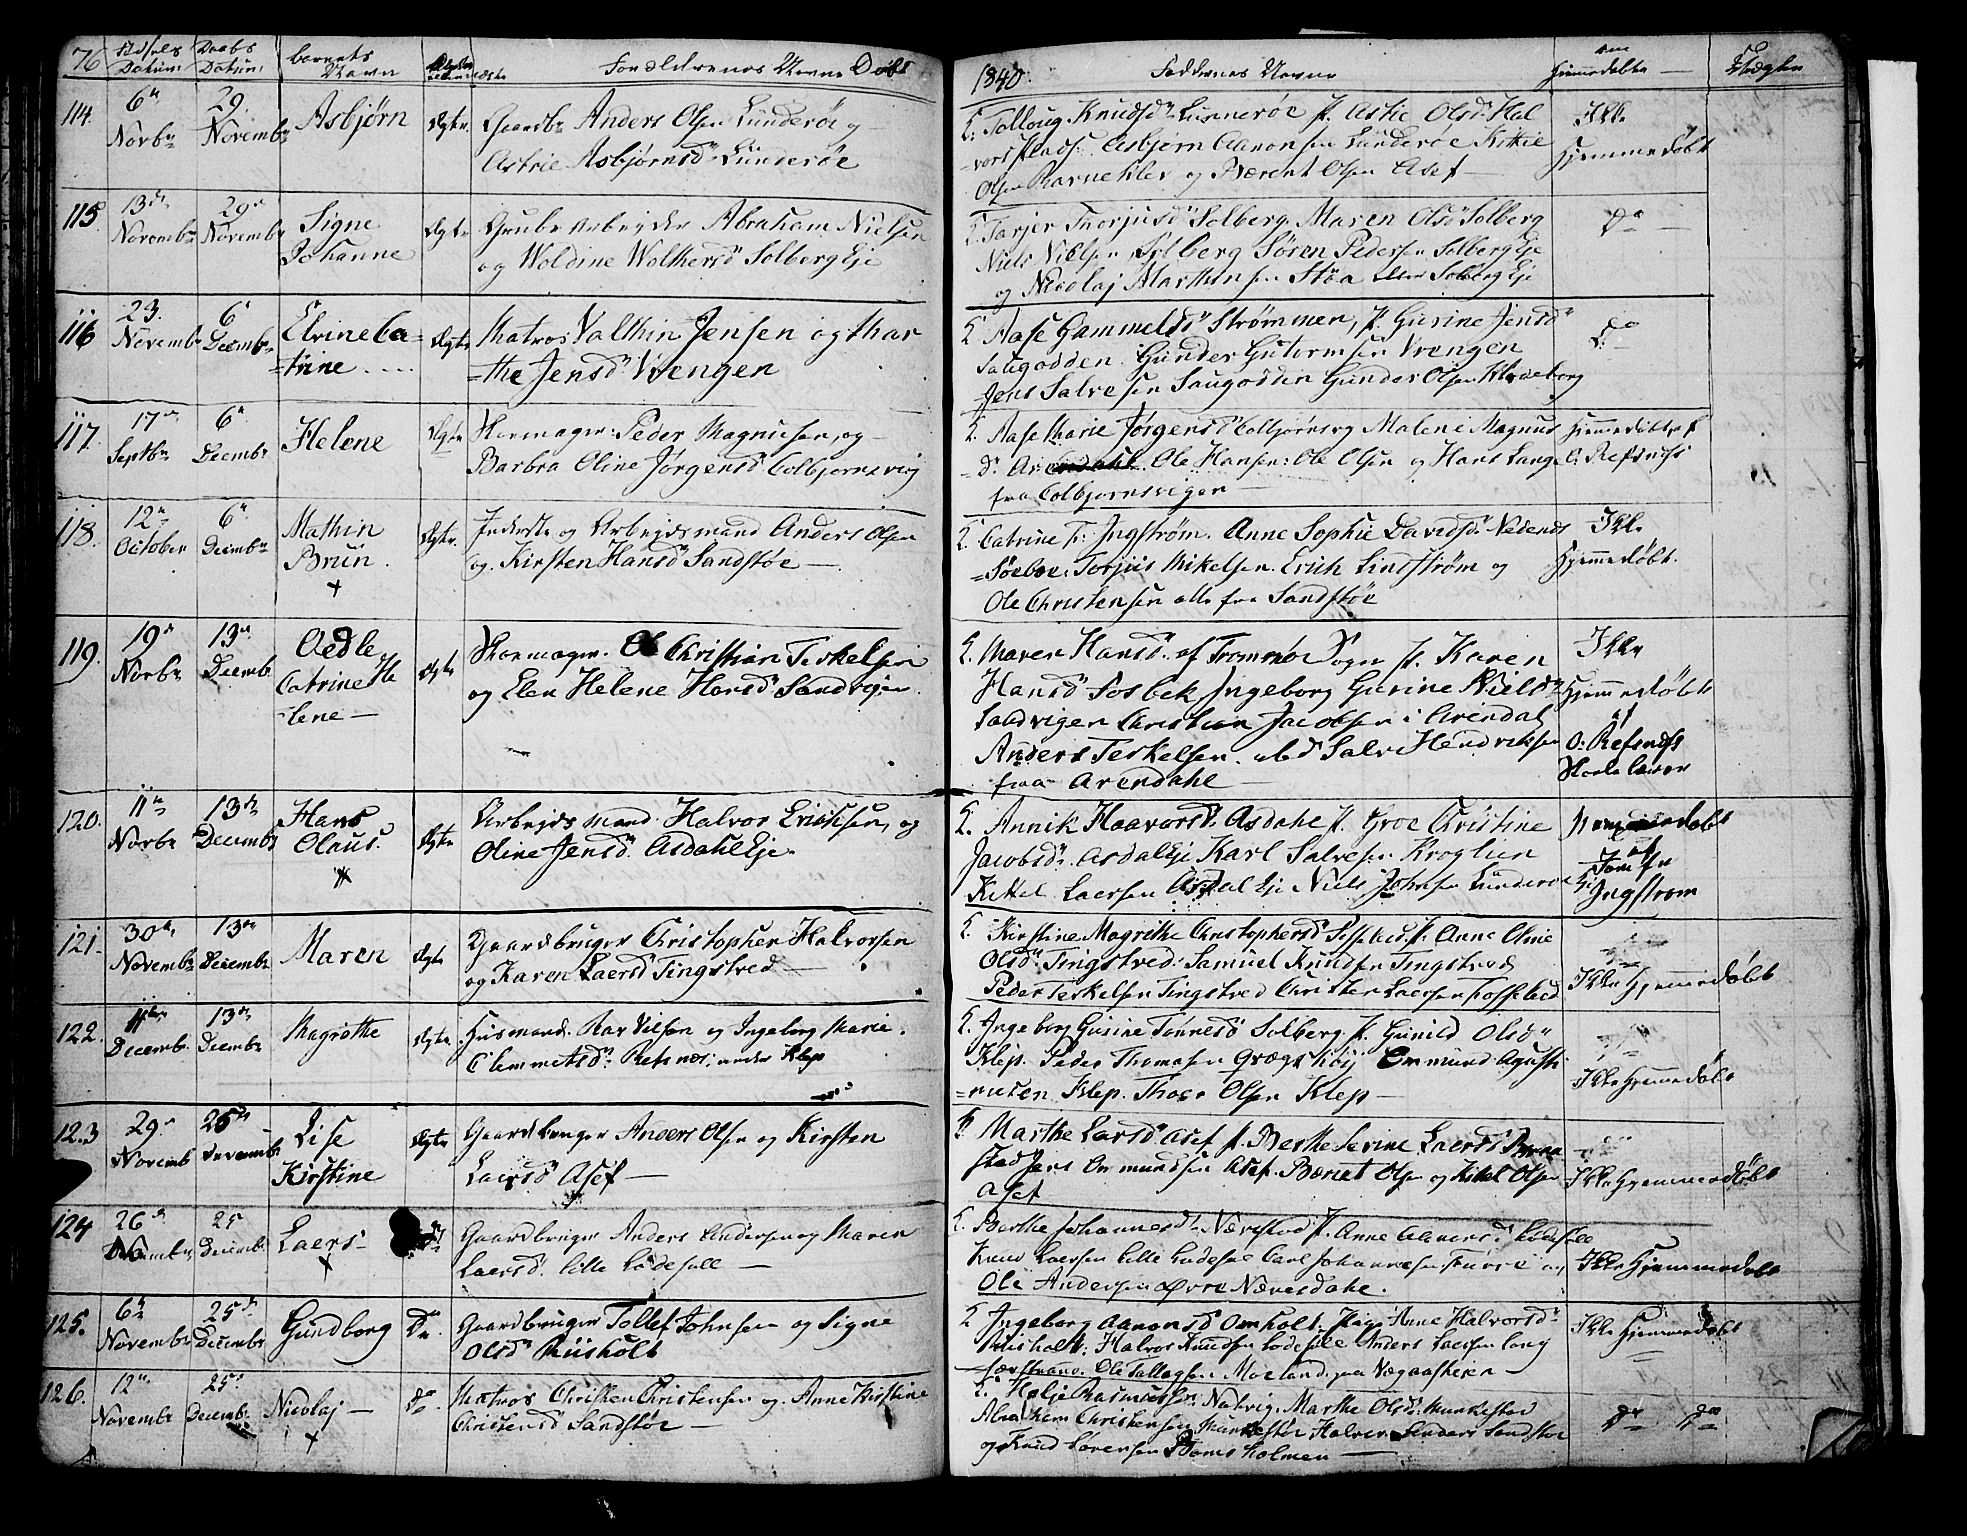 76 Fødsels Datum. Daabs Datum. barnets Navn Forældrenes Navne Døbt
1840. Faddernes Navne om hjemmedøbte
114. 6te Novbr 29. Novembr Asbjørn Ægte Gaardbr Anders Olsen Lunderøe og
Astrie Asbjørnsd Lunderøe
Talloug Knudsd Lunnerøe Astie Olsd Hal
vors plads. Asbjørn Aanonsen Lunderøe Kittil
Olsen Ravneklev og Bærent Olsen Asef
Ikke Hjemmedøbt
115. 13de Novembr 29de Novembr Signe Johanne Ægte Grube Arbeyder Abraham Nielsen
og Woldine Wolkersd Solberg Eje
Tarjer Thorjusd Solberg Maren Olsd Solberg
Niels Nielsen Solberg Søren Pedersen Solberg Eje
og Nicolaj Marthinsen Støa Solberg Eje
Do
116 23. Novembr 6te Decembr Elvine Ca=
=trine Ægte Matros Valthin Jensen og Mar
=the Jensd Vrengen
Aase Gammelsd Strømmen, Gurine Jensd
Saugodden. Gunder Gutormsen Vrengen
Jens Salvesen Saugodden Gunder Olsen Kloveborg
Do
117. 17de Septbr 6te Decembr Helene Ægte Skomager: Peder Magnusen, og
Barbra Oline Jørgensd Colbjørnsvig
Aase Marie Jørgensd Colbjørnsvg Malene Magnus
d. Arendahl Ole Hansen: Ole Olsen og Hans Lange
fra Colbjørnsvigen
Hjemmedøbt af O: Refsnes
118. 12te October 6te Decembr Mathin Brun. Ægte Inderste og Arbejdsmand Anders Olsen
og. Kirsten Hansd Sandstøe
Catrine Ingstrøm. Anne Sophie Davidsd Nedenes
=Søeboe: Torjus Mikelsen. Erich Lindstrøm og
Ole Christensen alle fra Sandstøe
Ikke Hjemmedøbt.
119. 19de Novbr 13de Decemb. Aedle Catrine He
lene Ægte Skomager. Ole Christian Teskelsen
og Elen Helene Hansd Sandvigen.
Maren Hansd. af Tromøe Sogn Karen
Hansd Fosbek Ingeborg Gurine Nielsd
Sandvigen Christian Jacobsen i Arendal
Anders Teskelsen. Salve Hendriksen
fra Arendahl
Ikke Hjemmedøbt af O: Refsnes Skolelærer
120. 11te Novbr 13de Decembr Hans Olaus. Ægte Arbejdsmand Halvor Ericksen, og
Oline Jensd. Asdahl Eje.
Annik Haavorsd. Asdahl Groe Christine
Jacobsd. Asdal Eje Karl Salvesen Kroglien
Kittel Laersen Asdal Eje Niels Johnsen Lunderøe Eje
Hjemmedøbt af Ingstrøm
121. 30te Novembr 13de Decembr Maren Ægte Gaardbruger Christopher Halvorsen
og Karen Laersd Tingstved
Kirstine Magrethe Christophersd Anne Oline
Olsd. Tingstved. Samuel Knudsen Tingstved
Peder Teskelsen Tingstved Christen Laersen
Ikke Hjemmedøbt
122. 11te Decembr. 13de Decembr Magrethe Ægte Husmand. og Ingeborg Marie
Clemmetsd: Refsnæs; under Klep
Ingeborg Gurine Tønnesd Solberg Gunild Olsd
Klep. Peder Thomasen Grægshøj Ommund Agusti
=nusen Klep. Thoer Olsen Klep
Ikke Hjemmedøbt
123 29de Novemb 25de Decemb. Lise Kirstine Ægte Gaardbruger Anders Olsen og Kirsten
Laersd Asef
Marthe Laersd Asef Berthe Serine Laersd
Jens Ommundsen Asef. Bærnet Olsen og Kittel Olsen
Asef
Ikke Hjemmedøbt
124 26de Novembr. 25 Decembr. Laers Gaardbruger Anders Andersen og Maren
Laersd. Lille Lodefall
Berthe Johannesd. Nævestad Anne Lodefall
Knud Laersen Lille Lodefall Carl Johannesen Furre og
Ole Andersen Øvre Næresdahl.
Ikke Hjemmedøbt
125. 6te Novembr 25de Decembr Gundborg Do. Gaardbruger Tollef Johnsen og Signe
Olsd Riisholt
Ingeborg Aanonsd Omholt. Pige Anne Halvorsd
Riisholt: Halvor Knudsen Lodefall Anders Laersen Lang
Ole Tallagsen Moeland paa Vegaarsheien
Ikke Hjemmedøbt
126. 12te Novembr 25de Decembr Nicolaj Do. Matros Christen Christensen og Anne Kirstine
Christensd Sandstøe
Helje Rasmussen Natvig. Marthe Olsd
Abraham Christensen Halvor Anders Sandstøe
og Knud Sørensen Holmen
Do Do